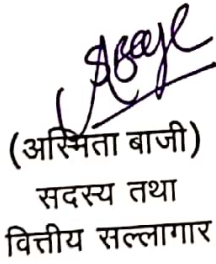 (अस्मिता बाजी)
सदस्य तथा
वित्तीय सल्लागार